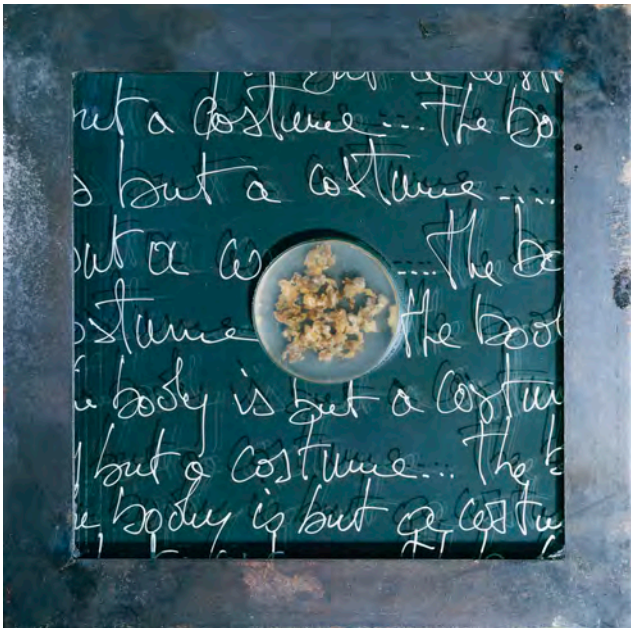 but a costume
but a costume... The bo
s but a costume ....
but a co ....The bo
ostume the bod
e body is but a costum
but a costume... The b
e body is but a costu